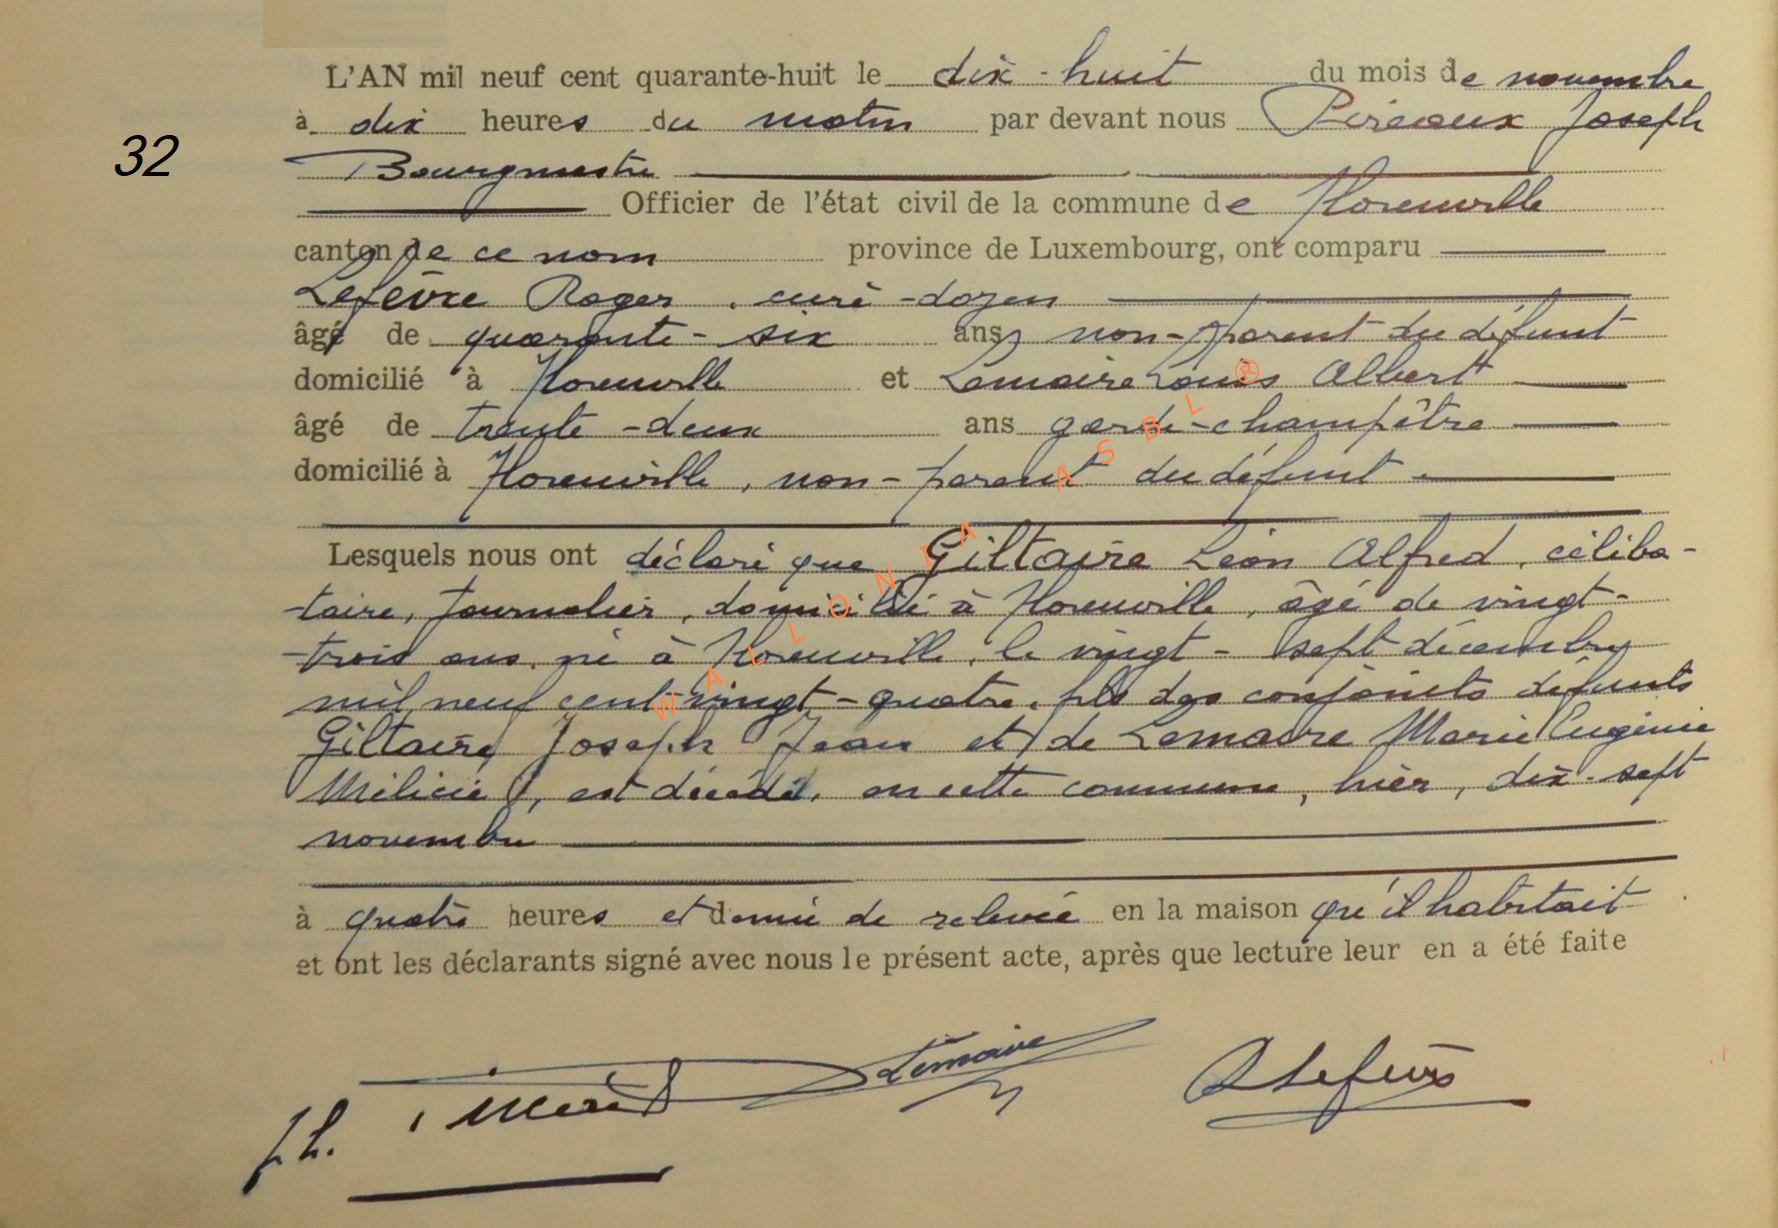 L'AN mil neuf cent quarante-huit le dix-huit du mois de novembre
à dix heures du matin par devant nous Pireaux Joseph
32
Bourgmestre
Officier de l'état civil de la commune de Florenville
canton de ce nom province de Luxembourg, ont comparu
Lefèvre Roger, curé-doyen
âgé de quarante-six ans, non-parent du défunt
domicilié à Florenville et Lemaire Louis Albert
âgé de trente-deux ans garde-champêtre
domicilié à Florenville, non-parent du défunt
Lesquels nous ont déclaré que Giltaire Léon Alfred, céliba-
taire, journalier, domicilié à Florenville, âgé de vingt-
trois ans, né à Florenville, le vingt-sept décembre
mil neuf cent vingt-quatre, fils des conjoints défunts
Giltaire, Joseph Jean et de Lemaire Marie Eugénie
Mélicie, est décédé, en cette commune, hier, dix-sept
novembre
à quatre heures et demie de relevée en la maison qu'il habitait
et ont les déclarants signé avec nous le présent acte, après que lecture leur en a été faite
Lemaire
R Lefèvre
Jh.
WALLONIA ASBL ®